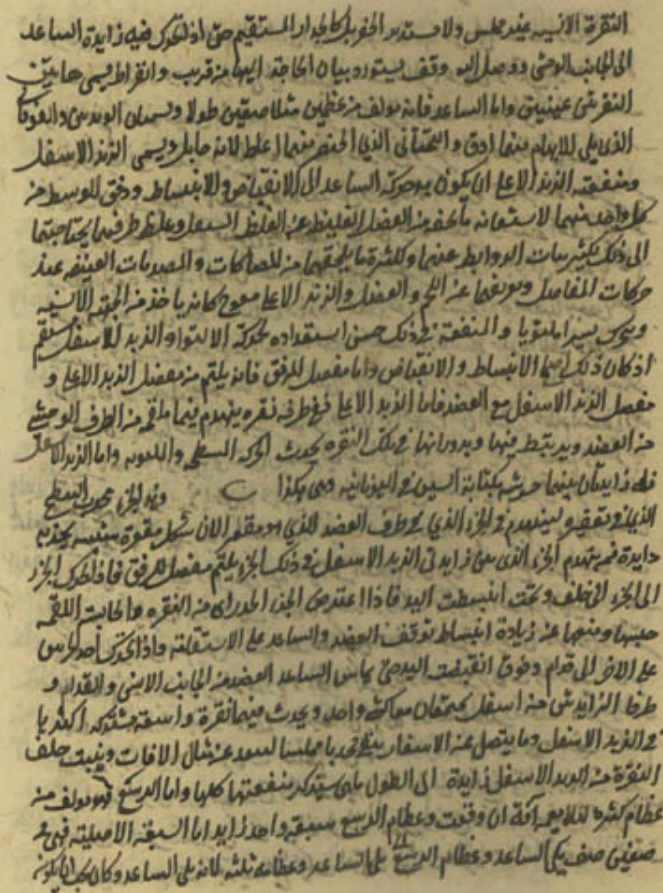 النقرة الانسيه عند مجلس ولا مستدير الحفر بل كالجدار المستقيم حتى اذا تحرك فيه زايدة الساعد
الى الجانب الوحشى ووصل اليه وقف بيان الحاجة اليها من قريب وابقراط يسمى هاتين
النقرتين عينيتين واما الساعد فانه مولف من عظمين متلاصقين طولا ويسميان الزندين والفوقانى
الذى يلى الابهام منهما ادق والتحتانى الذى الخنصر منهما اغلظ لانه حامل ويسمى الزند الاسفل
ومنفعته الزند الاعلى ان يكون به حركة الساعد الى الانقباض والانبساط ودقق الوسط من
كل واحد منهما لاستغنائه بما يحفه من العضل الغليظة عن الغلظ المثقل وغلظ طرفيهما لحاجتهما
الى ذلك لكثرة نبات الروابط عنهما ولكثرة ما يلحقهما من المصاكات والمصدمات العنيفة عند
حركات المفاصل وتعريهما عن اللحم والعضل والزند الاعلى معوج كانه ياخذ من الجهة الانسية
ويتحرك يسيرا ملتويا والمنفعة فى ذلك حسن استعداده لحركة الالتواء والزند الاسفل مستقيم
اذ كان ذلك اصلح للانبساط والانقباض واما مفصل المرفق فانه يلتئم من مفصل الزند الاعلى و
مفصل الزند الاسفل مع العضد فاما الزند الاعلى ففى طرفه نقره يتهندم فيها لقمه من الطرف الوحشى
من العضد ويرتبط فيها وبدورانها فى تلك النقره يحدث الحركة المنبطحة والملتوية واما الزند الاسفل
فله زايدتان بينهما حز شبيه بكتابة السين فى اليونانية وهى هكذا C وهذا الحز محدب السطح
الذى فى تقعيره ليتهندم فى الحز الذى على طرف العضد الذى هو مقعر الا ان شكل مقعره شبيه بحدبة
دايرة فمن تهندم الحز الذى بين زايدتى الزند الاسفل فى ذلك الحز يلتئم مفصل المرفق فاذا تحرك الحز
الى الحز الى خلف وتحت انبسطت اليد فاذا اعترض الحز الجدارى من النقره الحابسة للقمه
حبسها ومنعها عن زيادة انبساط فوقف العضد والساعد على الاستقامة واذا تحرك احد الحزين
على الاخر الى قدام وفوق انقبضت اليد حتى يماس الساعد العضد من الجانب الانسى والقدام و
طرفا الزندين من اسفل يجتمعان معا كشى واحد ويحدث فيهما نقرة واسعة مشتركة اكثرها
فى الزند الاسفل وما يفضل عن الانتقار يبقى محدبا مملسا ليبعد عن منال الافات وينبت خلف
النقرة من الزند الاسفل زايدة الى الطول ما هى سنذكر منفعتها كلها واما الرسغ فهو مولف من
عظام كثيره لئلا يعمه آفة ان وقعت وعظام الرسغ سبعة وواحد زايد اما السبعة الاصليه فهى فى
صفين صف يلى الساعد وعظامه ثلثه لانه يلى الساعد وكان يجب ان يكون